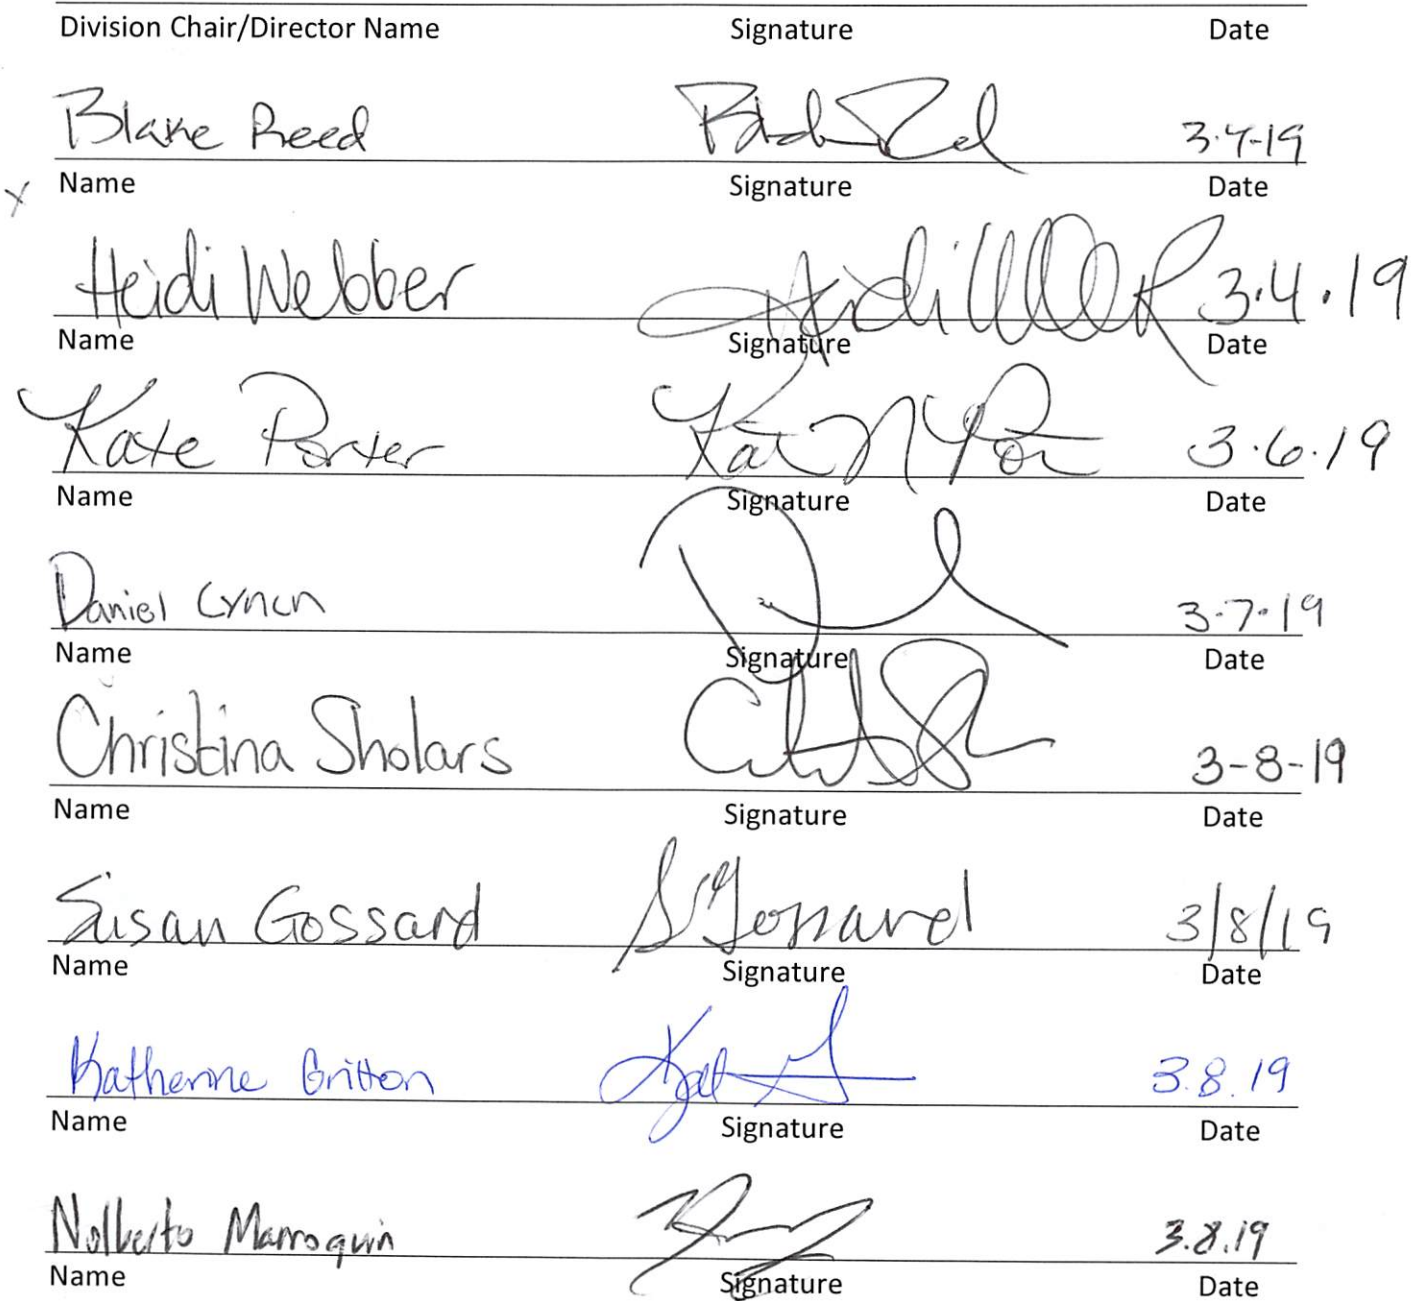 Division Chair/Director Name Signature Date
Blake Reed 3-4-19
Name Signature Date
x
Heidi Webber Heidi Webber 3.4.19
Name Signature Date
Kate Porter 3.6.19
Name Signature Date
Daniel Lynch 3-7-19
Name Signature Date
Christina Sholars 3-8-19
Name Signature Date
Susan Gossard SGossard 3/8/19
Name Signature Date
Katherine Gritton 3.8.19
Name Signature Date
Nolberto Marroquin 3.8.19
Name Signature Date